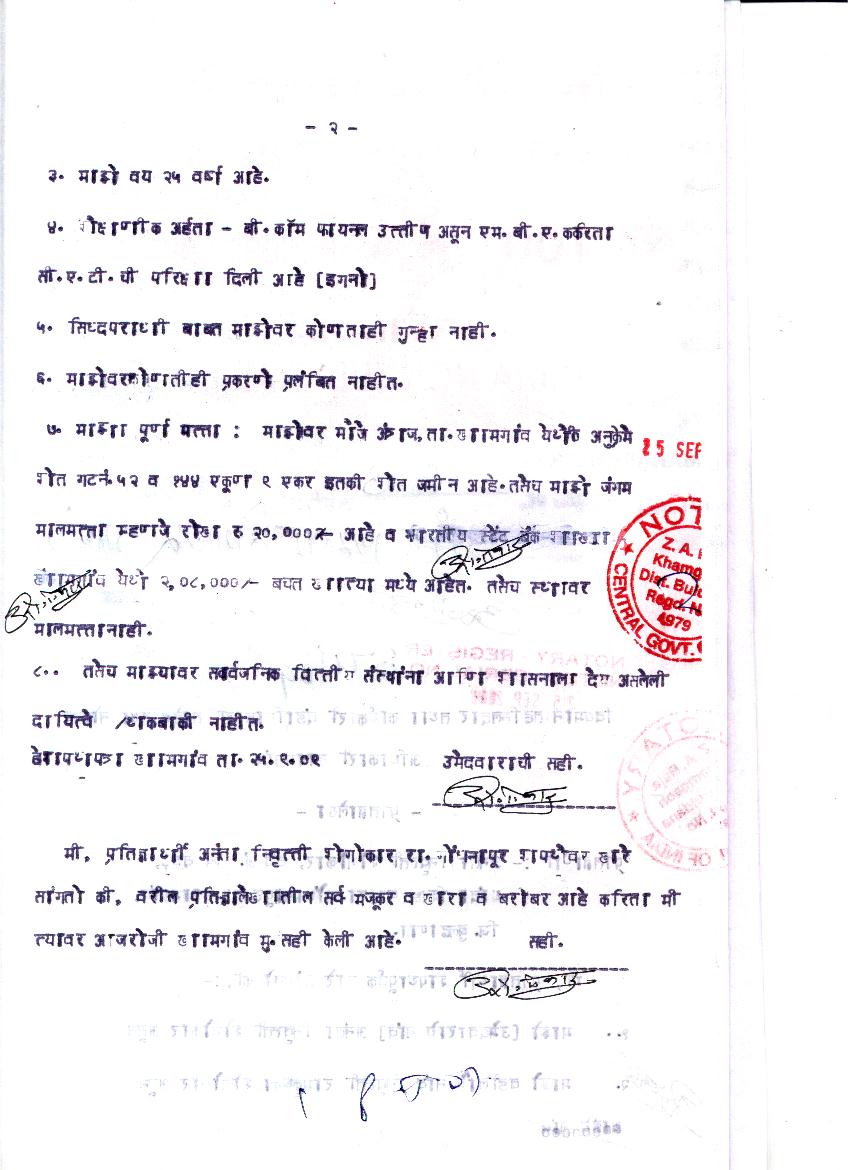 - २ -
३. माझे वय २५ वर्षा आहे.
४. शैक्षाणीक अर्हता - बी.कॉम फायनल उत्तीर्ण असून एम. बी.ए. करिता
सी.ए.टी.ची परिक्षा दिली आहे [इगनो]
५. सिध्दपराधी बाबत माझेवर कोणताही गुन्हा नाही.
६. माझेवरकोणतीही प्रकरणे प्रलंबित नाहीत.
७. माझा पूर्ण पत्ता : माझेवर मौजे अंत्रज,ता.खामगांव येथील अनुक्रमे
शेत गटनं.५२ व १४४ एकूण ९ एकर इतकी शेत जमीन आहे.तसेच माझे जंगम
मालमत्ता म्हणजे रोख रु २०,०००/- आहे व भारतीय स्टेट बँक शाखा
खामगांव येथे २,०८,०००/- बचत खात्या मध्ये आहेत. तसेच स्थावर
मालमत्तानाही.
८.. तसेच माझ्यावर सार्वजनिक वित्तीय संस्थांना आणि शासनाला देय असलेली
दायित्वे /थकबाकी नाहीत.
हेशपथपत्र खामगांव ता. २५.९.०९ उमेदवाराची सही.
मी, प्रतिज्ञार्थी अनंता निवृत्ती शेगोकार रा. गोंधनापूर शपथेवर खरे
सांगतो की, वरील प्रतिज्ञालेखातील सर्व मजकूर व खरा व बरोबर आहे करिता मी
त्यावर आजरोजी खामगांव मु. सही केली आहे. सही.
25 SEP
Z. A.
Khamg
Dist. Buld
Regd. N
4979
CENTRAL GOVT.